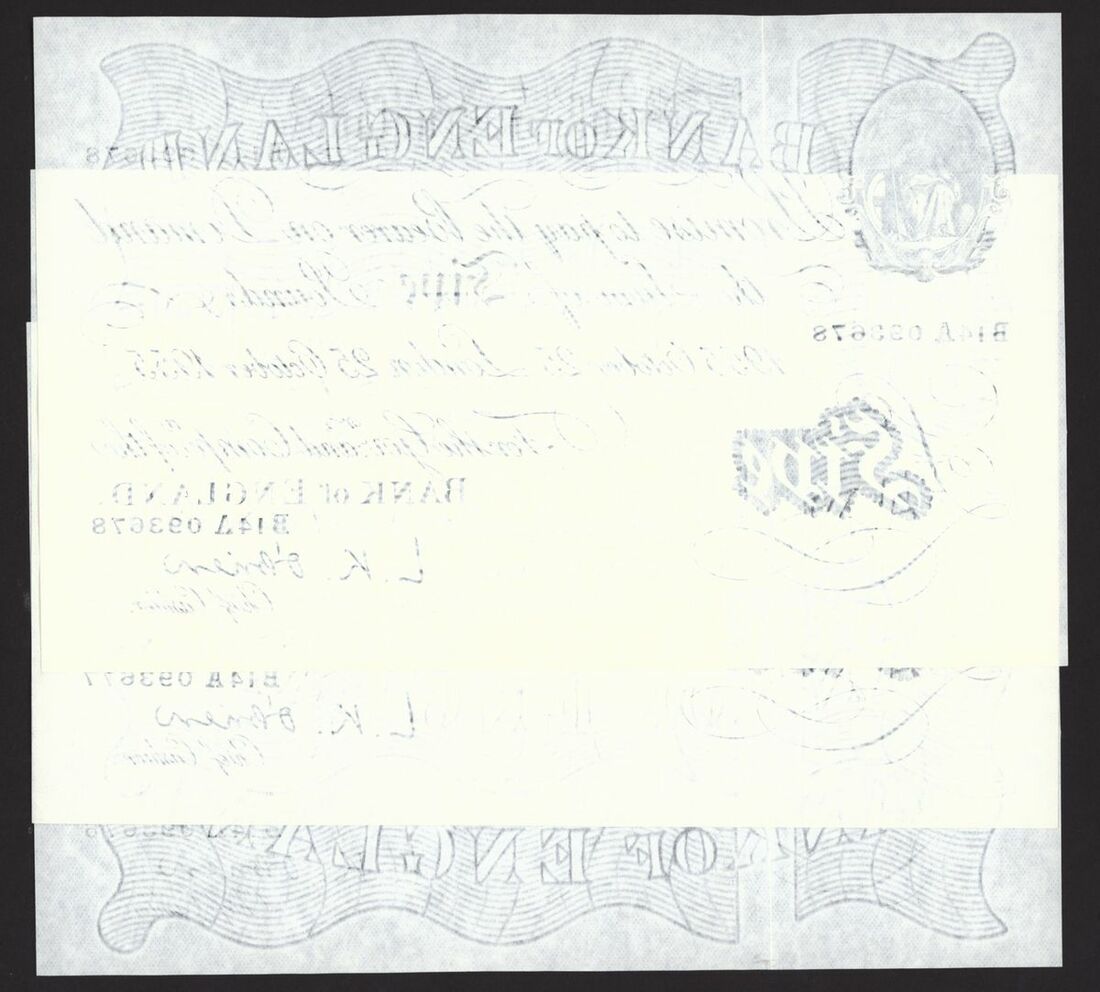 BANK OF ENGLAND
I Promise to pay the Bearer on Demand
the Sum of Five Pounds
B14A 093678
1955 October 25 London 25 October 1955
For the Gov.r and Comp.a of the
Five
BANK OF ENGLAND.
B14A 093678
L. K. O'Brien
Chief Cashier.
B14A 093677
L. K. O'Brien
Chief Cashier